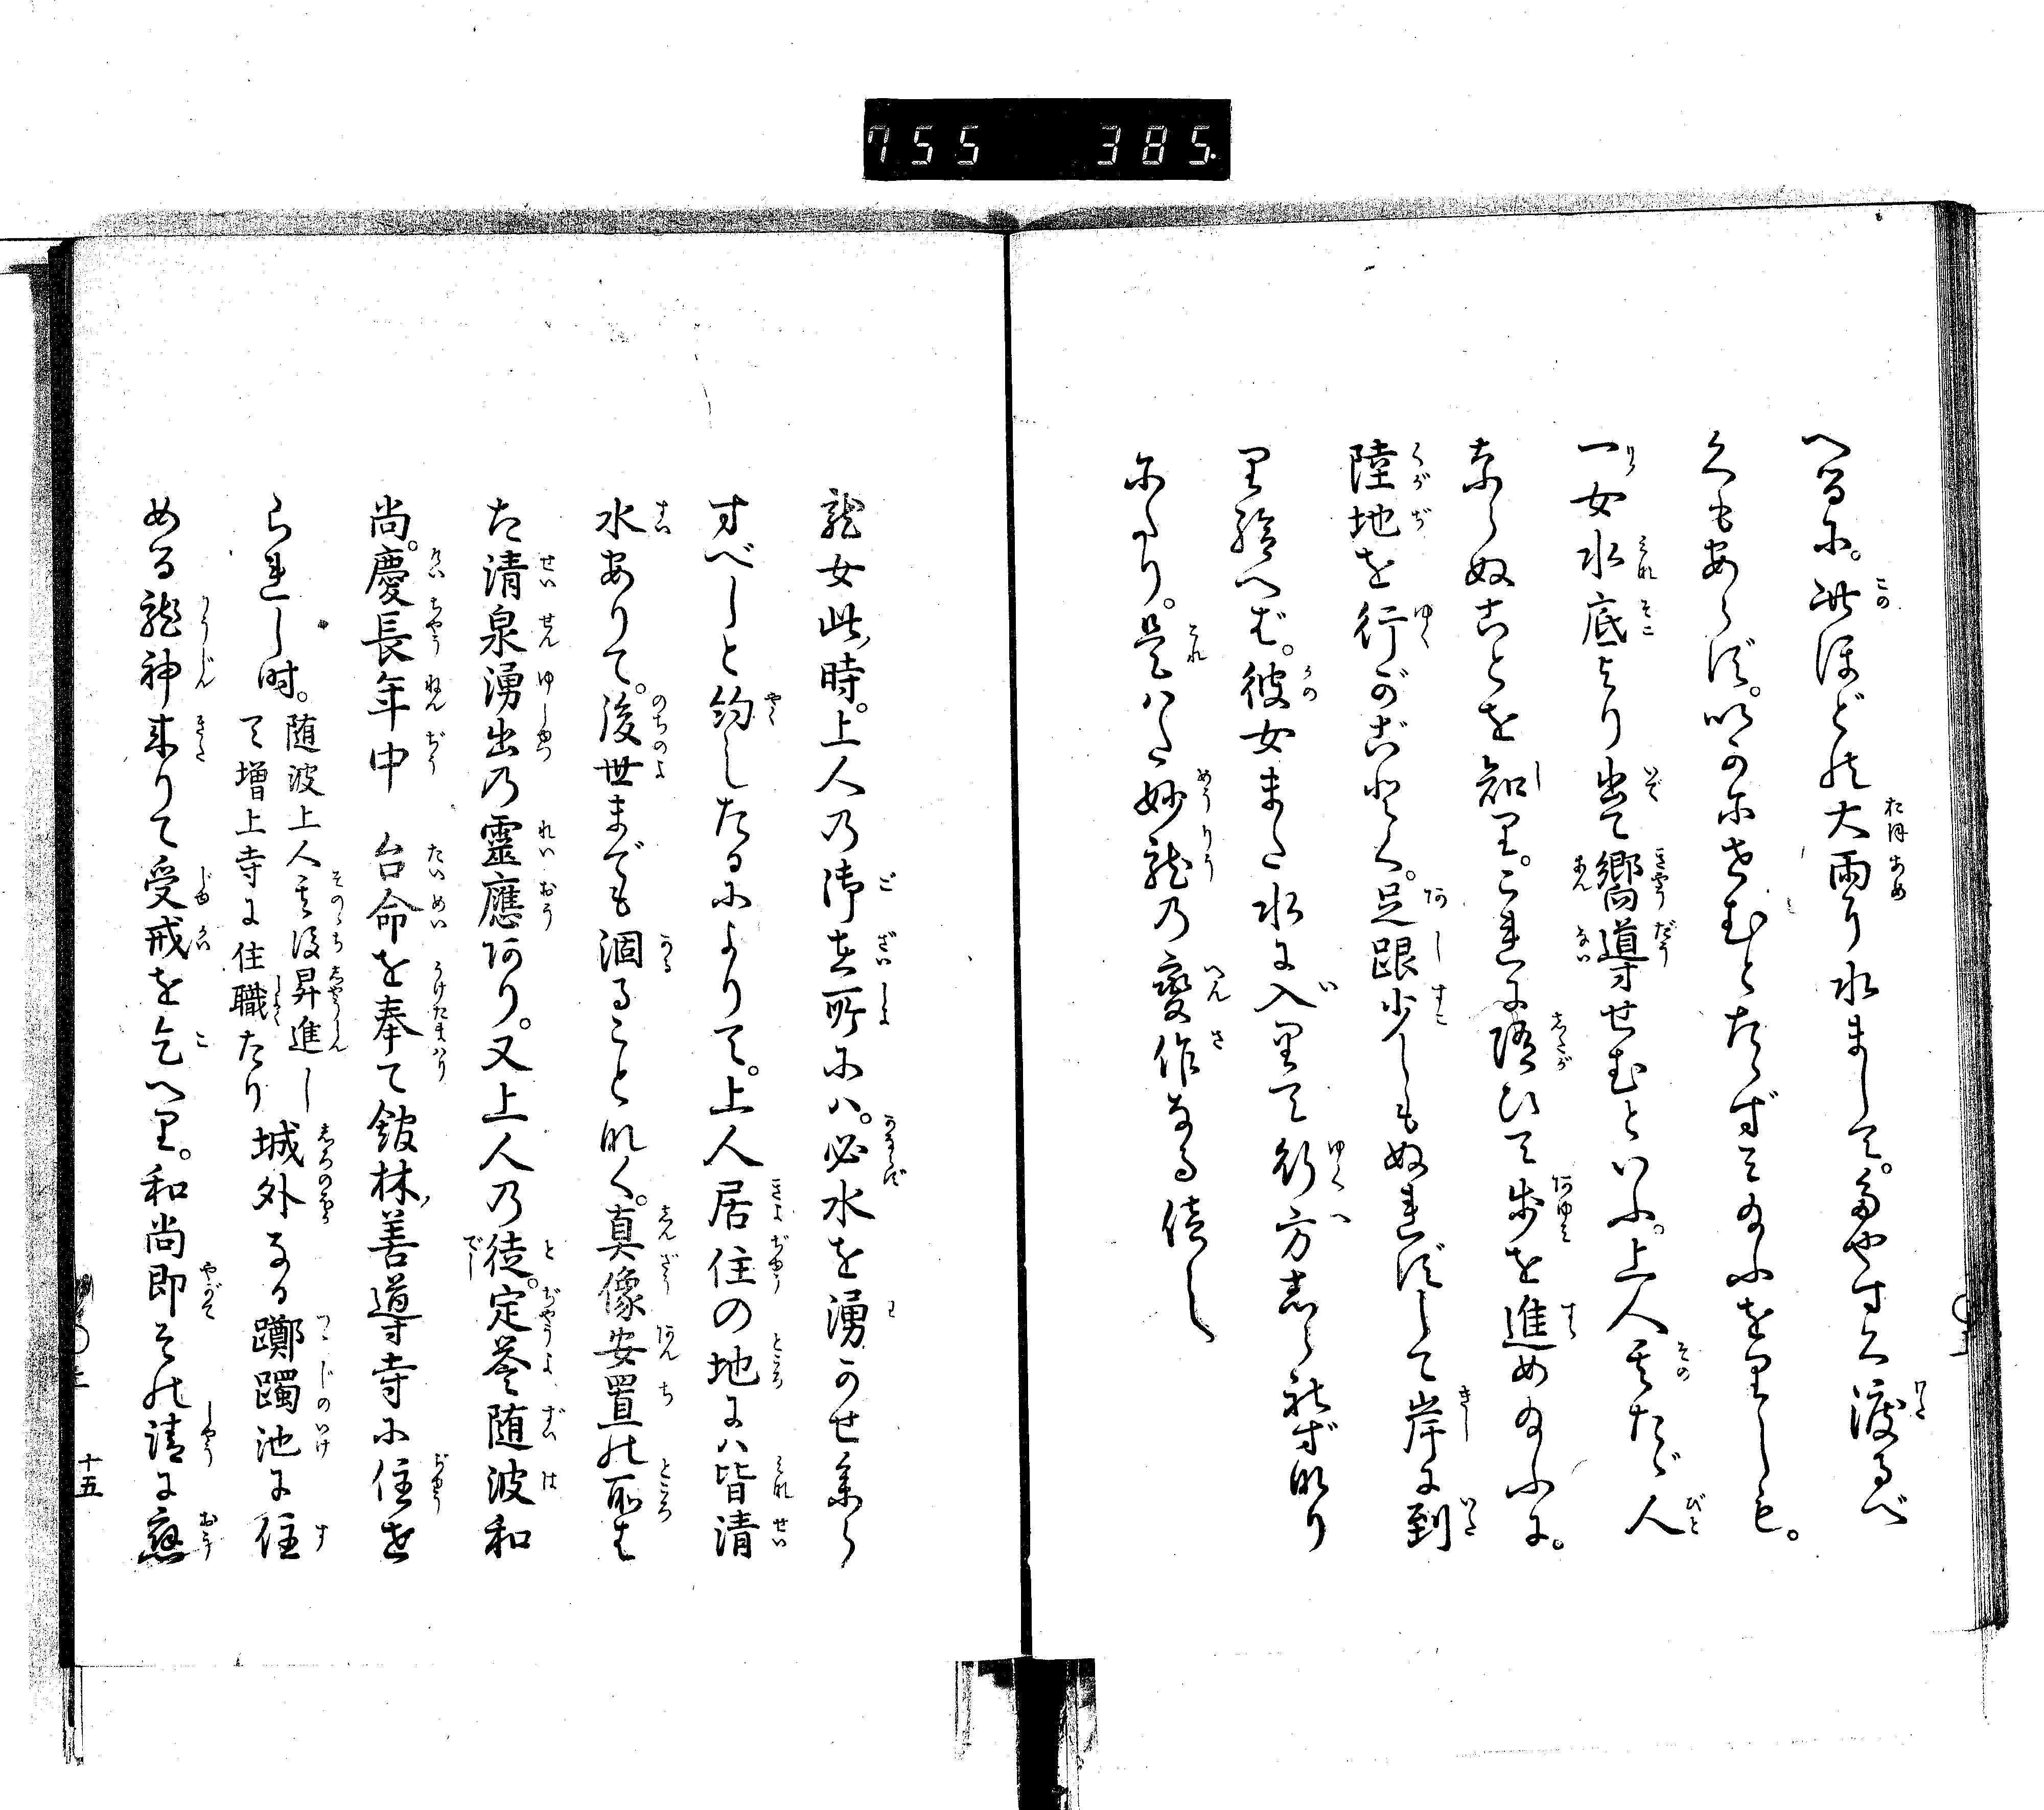 755 385
へるに。此ほどの大雨に水まして。たやすく渡るべ
くもあらず。いかにせむとたゝずみ給ふをりしも。
一女水底より出て嚮導せむといふ。上人其たゞ人
ならぬことを知り。これに随ひて歩を進め給ふに。
陸地を行がごとく。足跟少しもぬれずして岸に到
り給へば。彼女また水に入りて行方しられずなり
にたり。是はた妙龍の變作なる使し
龍女此時。上人の御在所には。必水を湧かせ参ら
すべしと約したるによりて。上人居住の地には皆清
水ありて。後世までも涸ることなく。真像安置の所は
た清泉湧出の靈應あり。又上人の徒。定誉随波和
尚。慶長年中 台命を奉て舘林善導寺に住せ
られし時。
随波上人其後昇進し
て増上寺に住職たり
城外なる躑躅池に住
める龍神来りて受戒を乞へり。和尚即その請に應
十五